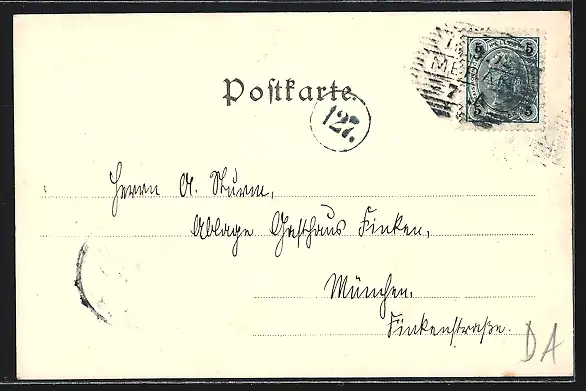 5 5
MERAN
7
5 5
Postkarte.
127.
Herrn A. Sturm,
Ablage Gasthaus Finken,
München.
Finkenstraße.
DA